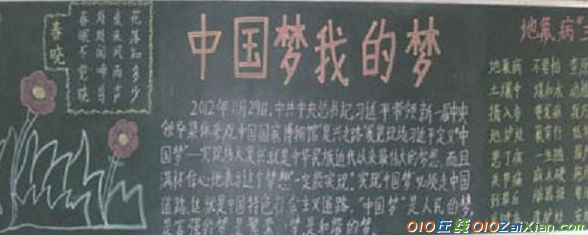 春晓
春眠不觉晓
处处闻啼鸟
夜来风雨声
花落知多少
中国梦我的梦
2012年11月29日,中共中央总书记习近平带领新一届中央
领导集体参观中国国家博物馆"复兴之路"展览现场习近平定义"中
国梦"—实现伟大复兴就是中华民族近代以来最伟大的梦想,而且
满怀信心地表示这个梦想"一定能实现."实现中国梦必须走中国
道路.这就是中国特色社会主义道路."中国梦"是人民的梦
地氟病
地氟病
土壤中
摄入者
地炉处
患了病
关节病
到最后
010在线 010ZaiXian.com